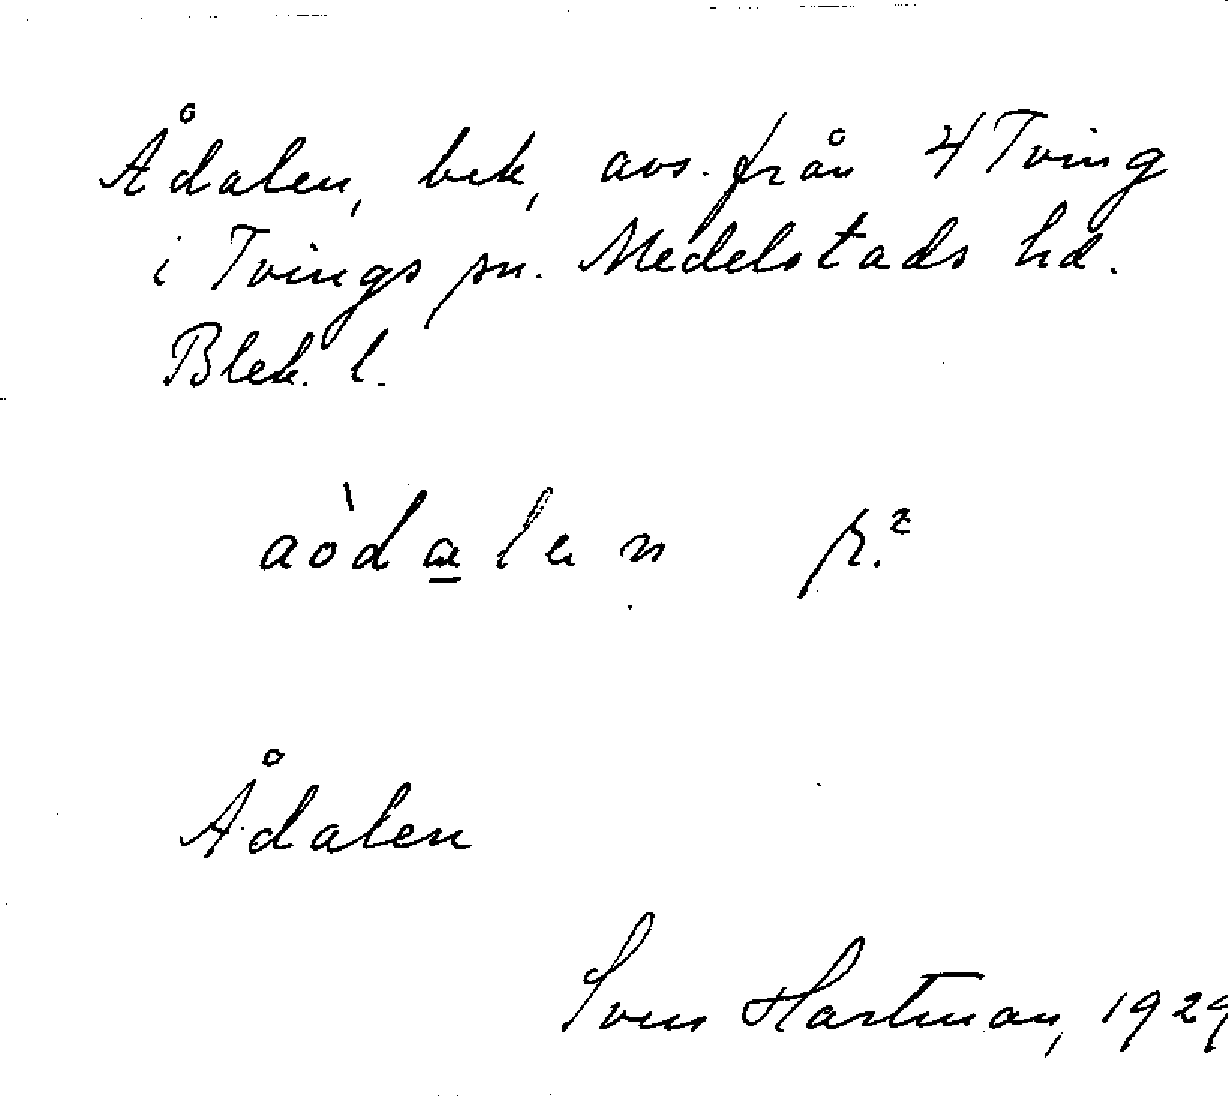 Ådalen, bek, avs. från 4 Tving
i Tvings sn. Medelstads hd.
Blek. l.
aòdalen p.²
Ådalen
Sven Hartman, 1929